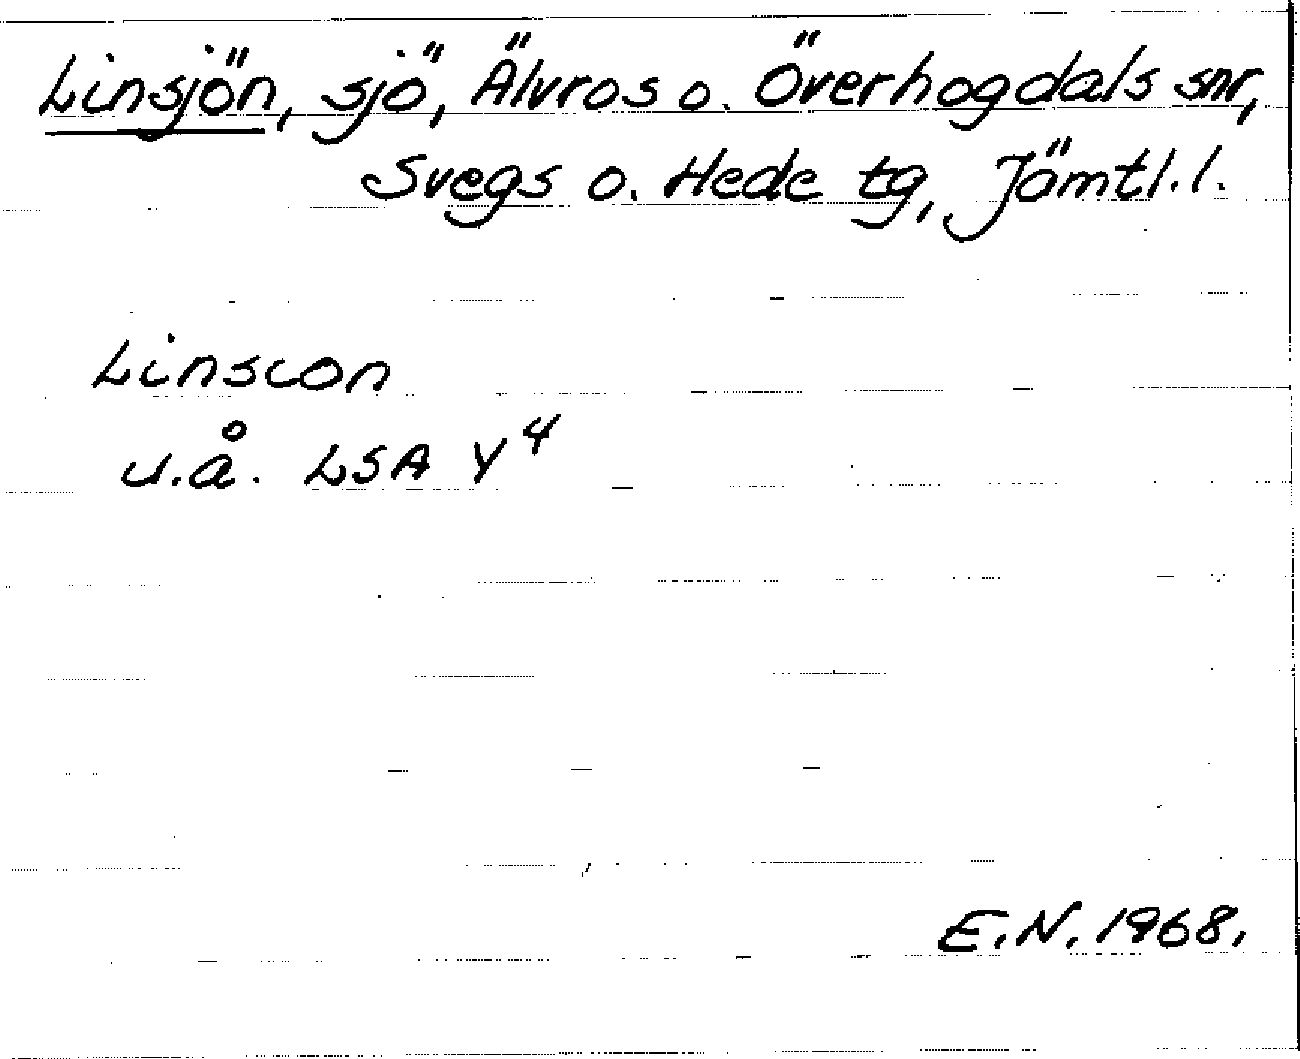 Linsjön, sjö, Älvros o. Överhogdals snr,
Svegs o. Hede tg, Jämtl. l.
Linscon
u.å. LSA Y4
E.N. 1968.